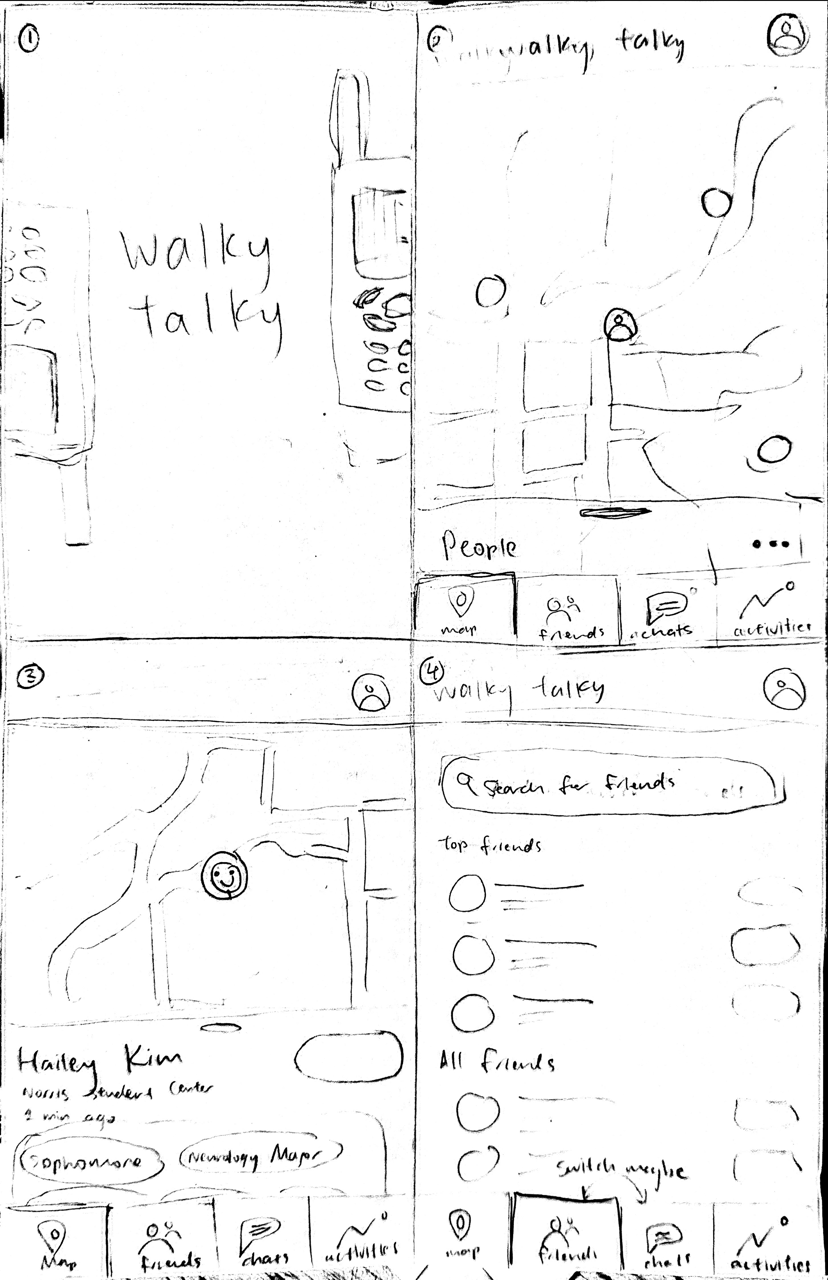 1
walky
talky
2
walky, talky
People
map
friends
chats
activities
3
Hailey Kim
Norris Student Center
sophomore
Neurology Major
Map
friends
chats
activities
4
walky talky
Search for friends
Top friends
All friends
switch maybe
map
friends
chats
activities